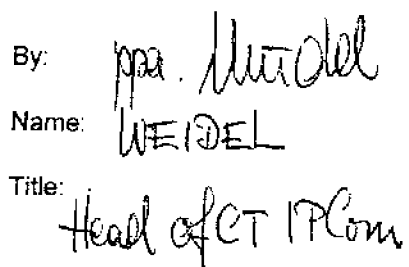 By: ppa.
Name: WEIDEL
Title:
Head of CT IP Com